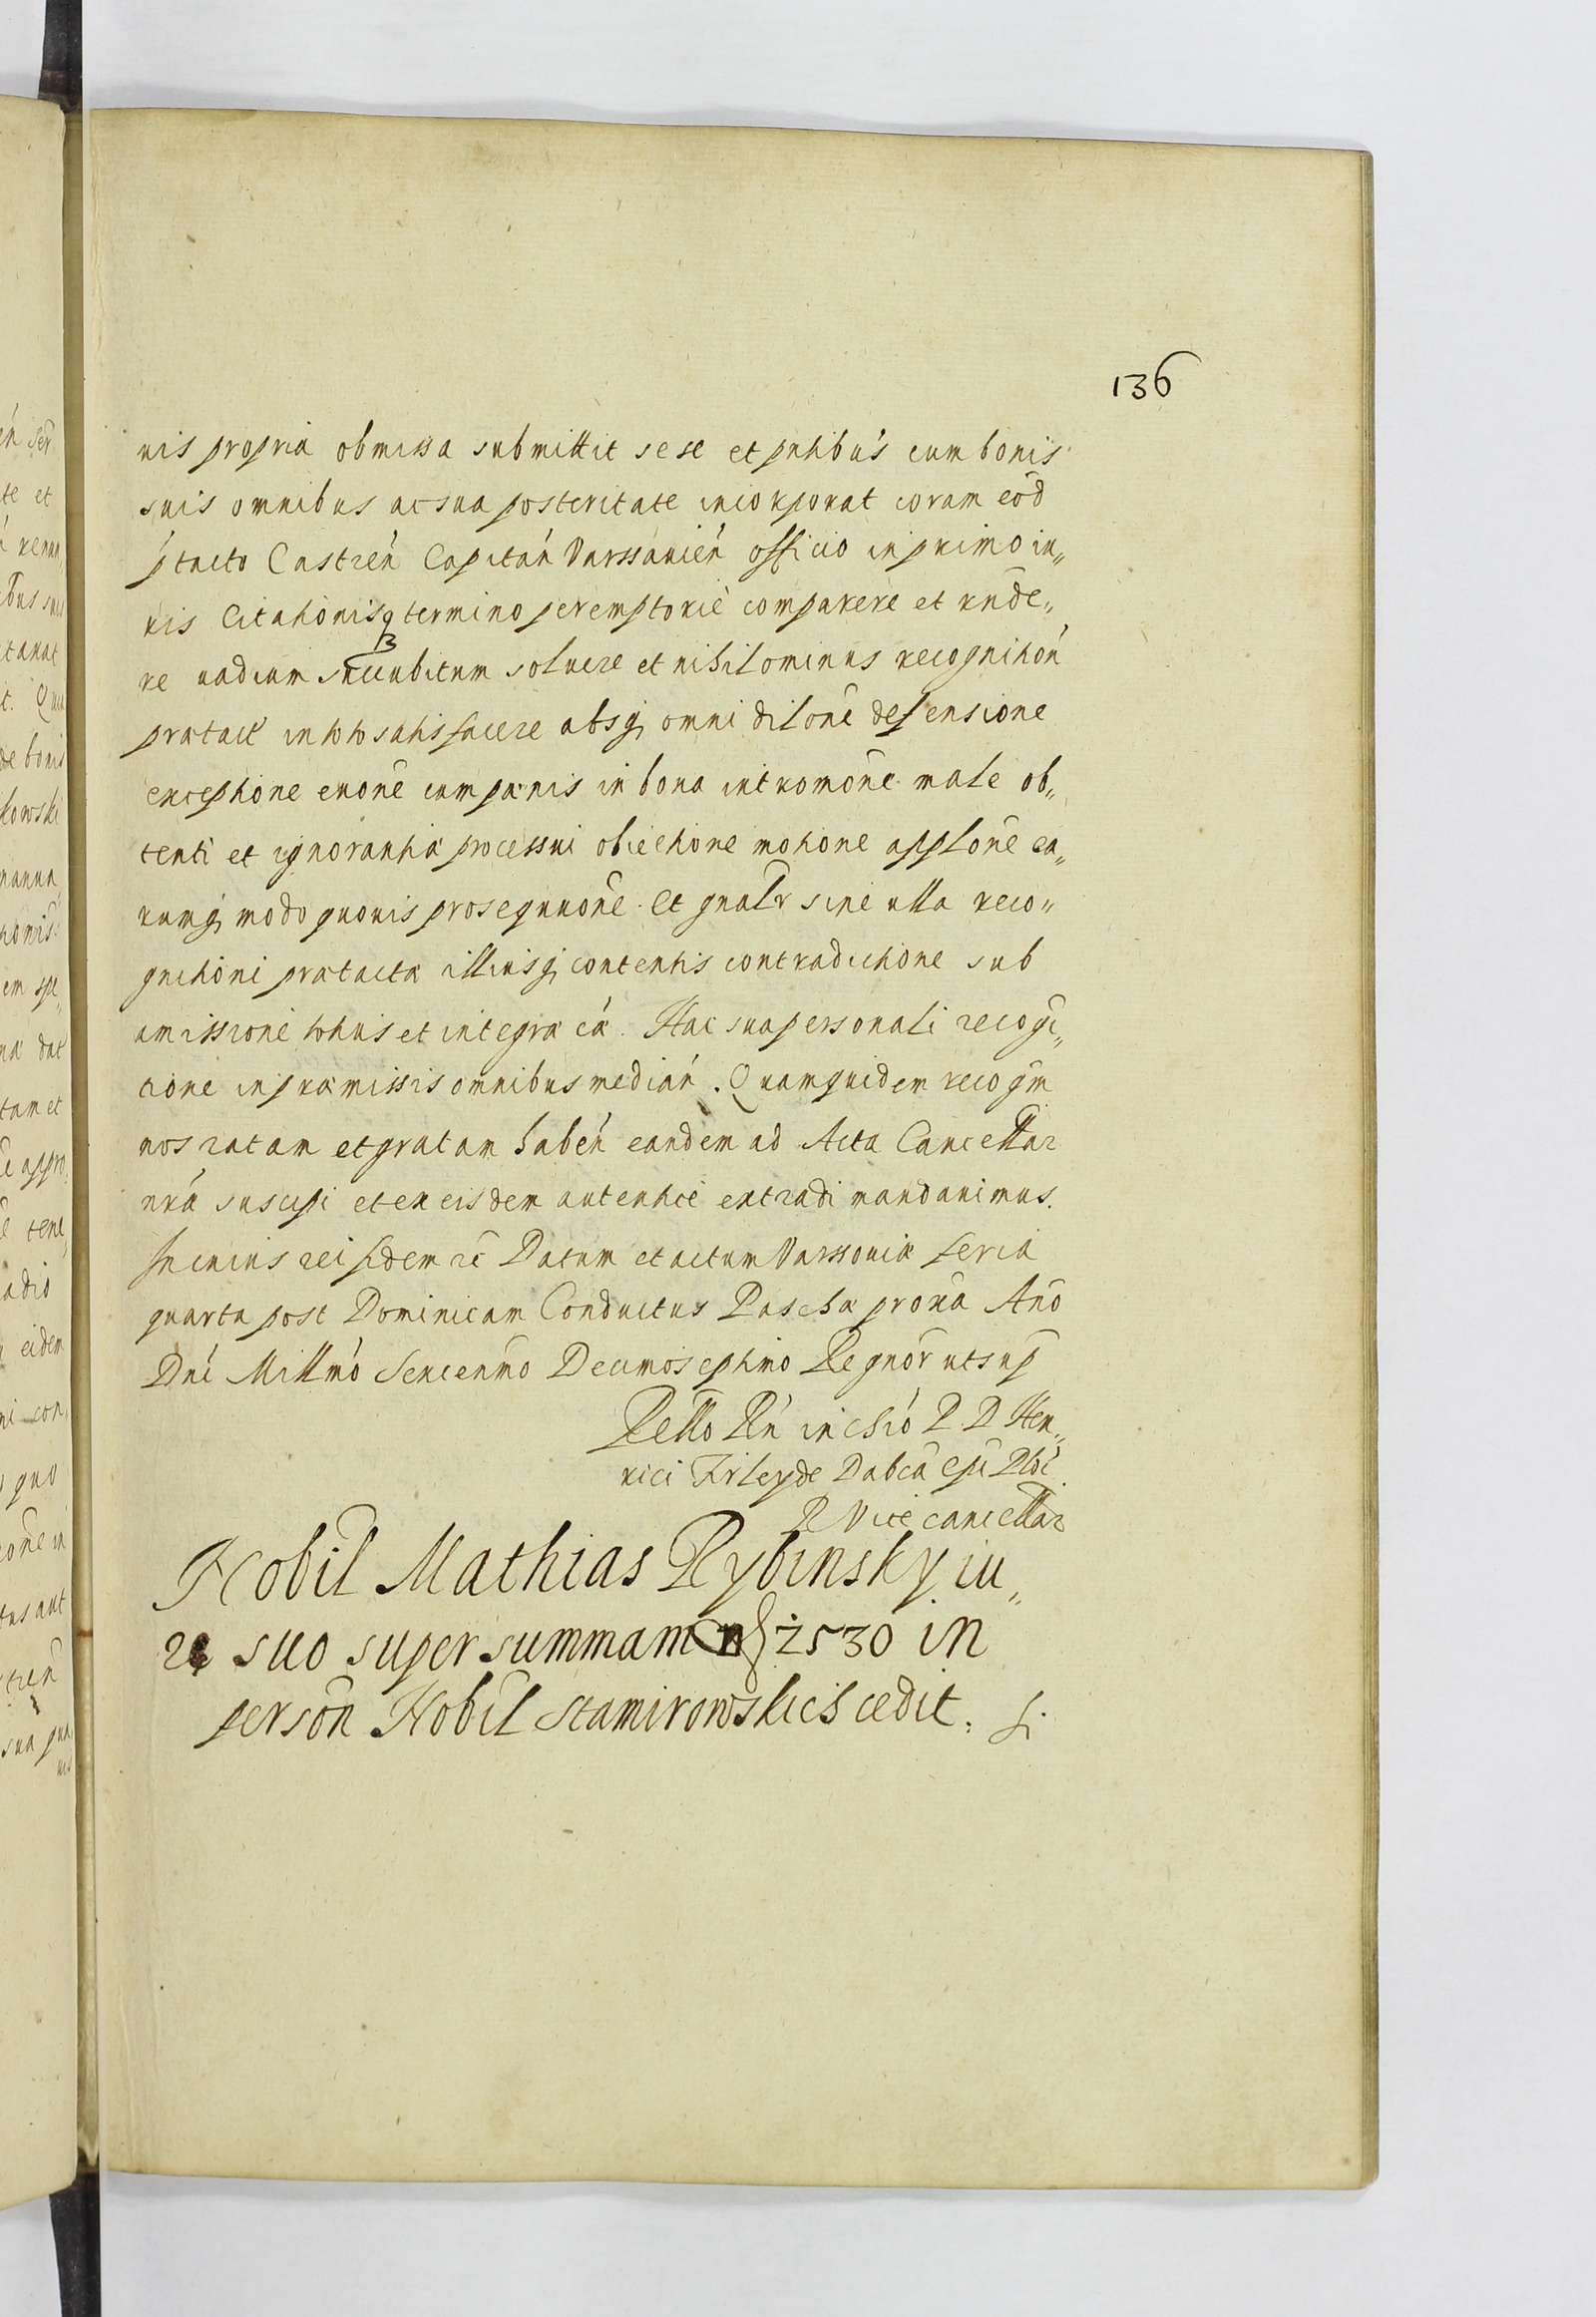 136
uis propria obmissa submittit sese et pntibus cum bonis
suis omnibus ac sua posteritate incorporat coram eod
ptacto Castren Capitan Varssauien officio in primo iu„
ris Citationisq termino peremptorie comparere et rnde„
re uadium succubitum soluere et nihilominus recognition
prætactæ in toto satisfacere absq omni dilone defensione
exceptione euone cum pænis in bona intromone male ob„
tenti et ignorantiæ processui obiectione motione applone ea„
rumq modo quouis prosequuone. Et gnalr sine ulla reco„
gnitioni prætactæ illiusq contentis contradictione sub
amissione totius et integræ cæ. Hac sua personali recogi„
tione in præmissis omnibus median. Quam quidem recogm
nos ratam et gratam haben eandem ad Acta Cancellar
nra suscipi et ex eisdem autentice extradi mandauimus.
In cuius rei fidem rc Datum et actum Varssouiæ feria
quarta post Dominicam Conductus Paschæ proxa Ano
Dni Millmo Sexcenmo Decimoseptimo Regnor ut sup
Rello Rn in chro P. D Hen„
rici Firley de Dabca Epi Ploc
R Vicecancellar
Nobil Mathias Rybinsky iu„
re suo super summam 2530 in
person Nobil Stamirowskich cedit.